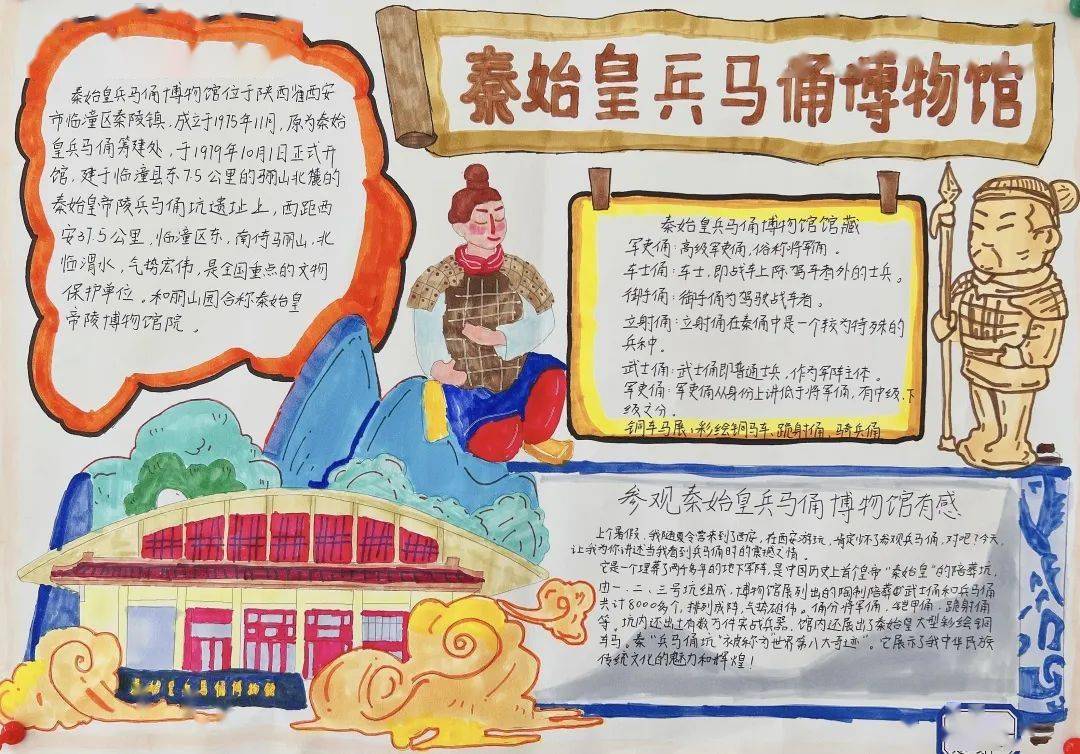 秦始皇兵马俑博物馆
秦始皇兵马俑博物馆位于陕西省西安
市临潼区秦陵镇,成立于1975年11月,原为秦始
皇兵马俑筹建处,于1979年10月1日正式开
馆,建于临潼县东7.5公里的骊山北麓的
秦始皇帝陵兵马俑坑遗址上,西距西
安37.5公里,临潼区东,南倚骊山,北
临渭水,气势宏伟,是全国重点的文物
保护单位。和丽山园合称秦始皇
帝陵博物馆院。
秦始皇兵马俑博物馆馆藏
军吏俑:高级军吏俑,俗称将军俑。
车士俑:车士,即战车上除驾车者外的士兵。
御手俑:御手俑为驾驶战车者。
立射俑:立射俑在秦俑中是一个较为特殊的
兵种。
武士俑:武士俑即普通士兵,作为军阵主体。
军吏俑:军吏俑从身份上讲低于将军俑,有中级、下
级之分。
铜车马展,彩绘铜马车、跪射俑、骑兵俑
参观秦始皇兵马俑博物馆有感
上个暑假,我随夏令营来到了西安,在西安游玩,肯定少不了参观兵马俑,对吧?今天,
让我为你讲述当我看到兵马俑时的震撼之情。
它是一个埋葬了两千多年的地下军阵,是中国历史上首个皇帝“秦始皇”的陪葬坑,
由一、二、三号坑组成,博物馆展列出的陶制陪葬武士俑和兵马俑
共计8000多个,排列成阵,气势雄伟。俑分将军俑,铠甲俑、跪射俑
等。坑内还出土有数万件实战兵器。馆内还展出了秦始皇大型彩绘铜
车马。秦“兵马俑坑”被称为“世界第八大奇迹”。它展示了我中华民族
传统文化的魅力和辉煌!
秦始皇兵马俑博物馆